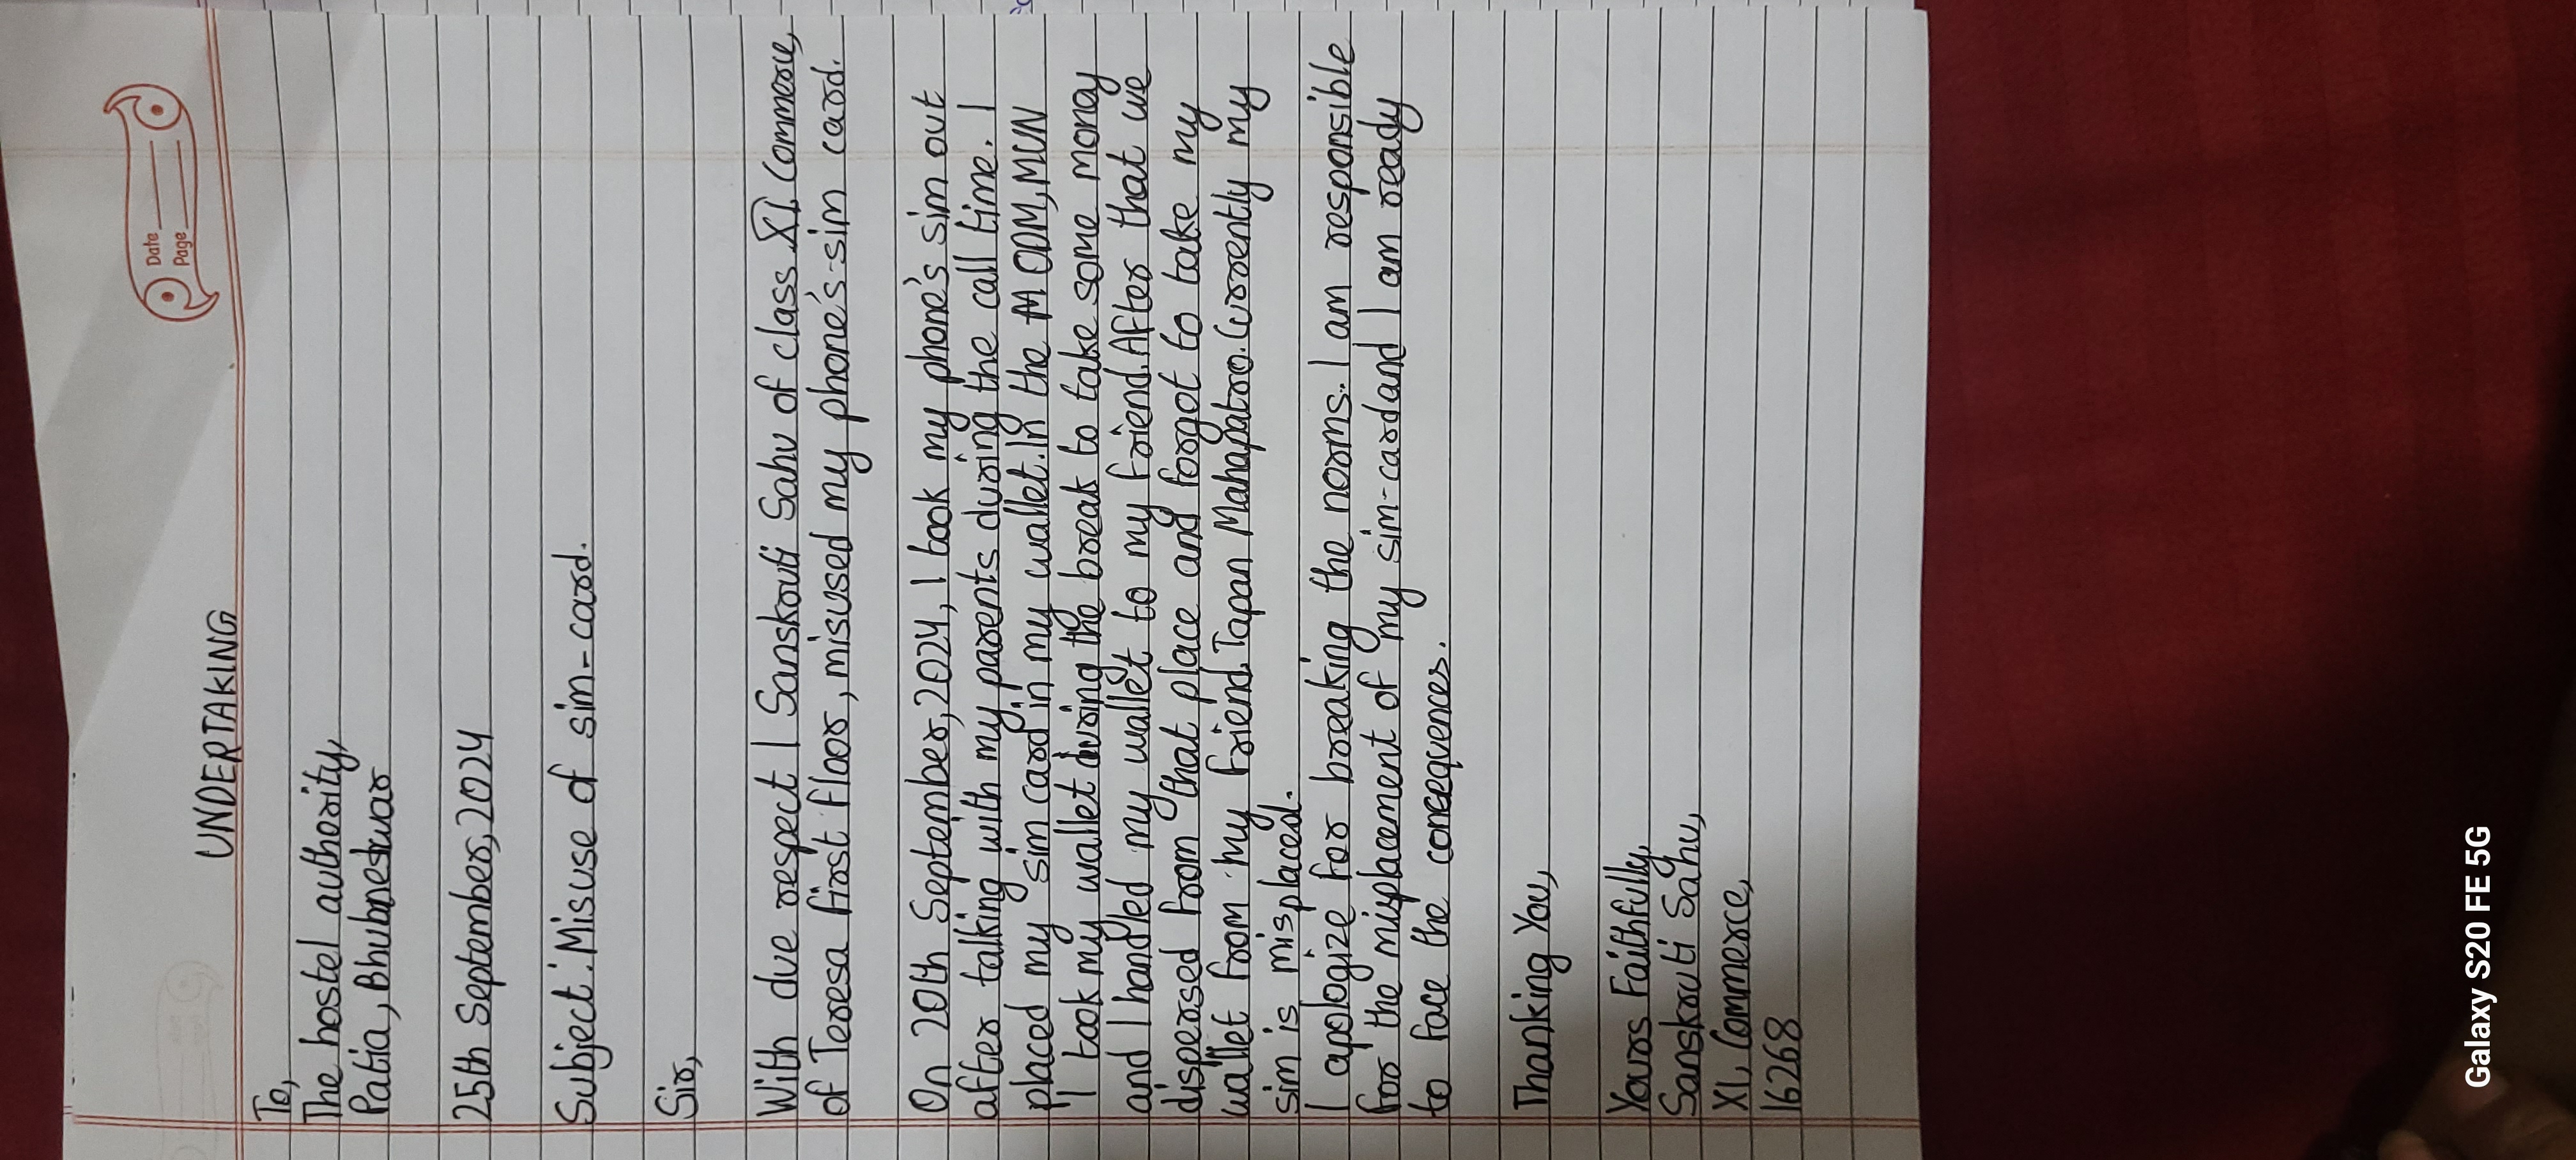 Date
Page
UNDERTAKING
To,
The hostel authority,
Patia, Bhubneshwar
25th September, 2024
Subject: Misuse of sim-card.
Sir,
With due respect I Sanskruti Sahu of class XI, Commerce,
of Teresa first floor, misused my phone's sim card.
On 20th September, 2024, I took my phone's sim out
after talking with my parents during the call time. I
placed my sim card in my wallet. In the ODM, MUN
I took my wallet during the break to take some money
and I handled my wallet to my friend. After that we
dispersed from that place and forgot to take my
wallet from my friend, Tapan Mahapatro. Currently my
sim is misplaced.
I apologize for breaking the norms. I am responsible
for the misplaement of my sim-card and I am ready
to face the conceqvences.
Thanking You,
Yours Faithfully,
Sanskruti Sahu,
XI, Commerce,
16268
Galaxy S20 FE 5G